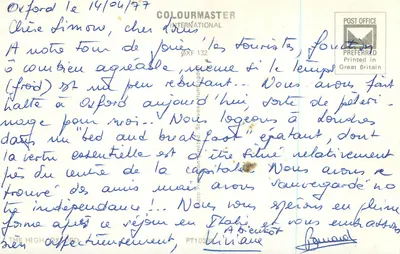 Oxford le 14/04/77
COLOURMASTER
INTERNATIONAL
POST OFFICE
PREFERRED
Printed in
Great Britain
Chère Simone, cher Louis
A notre tour de jouer les touristes, fonction
ô combien agréable, même si le temps
(froid) est un peu rebutant... Nous avons fait
halte à Oxford aujourd'hui, sorte de pèleri-
nage pour moi... Nous logeons à Londres
dans un "bed and breakfast" épatant, dont
la vertu essentielle est d'être situé relativement
près du centre de la capitale. Nous avons re
trouvé des amis mais avons sauvegardé no
tre indépendance!... Nous vous espérons en pleine
forme après ce séjour en Italie et vous embrassons
bien affectueusement,
A bientôt
Viviane
Bernard
THE HIGH